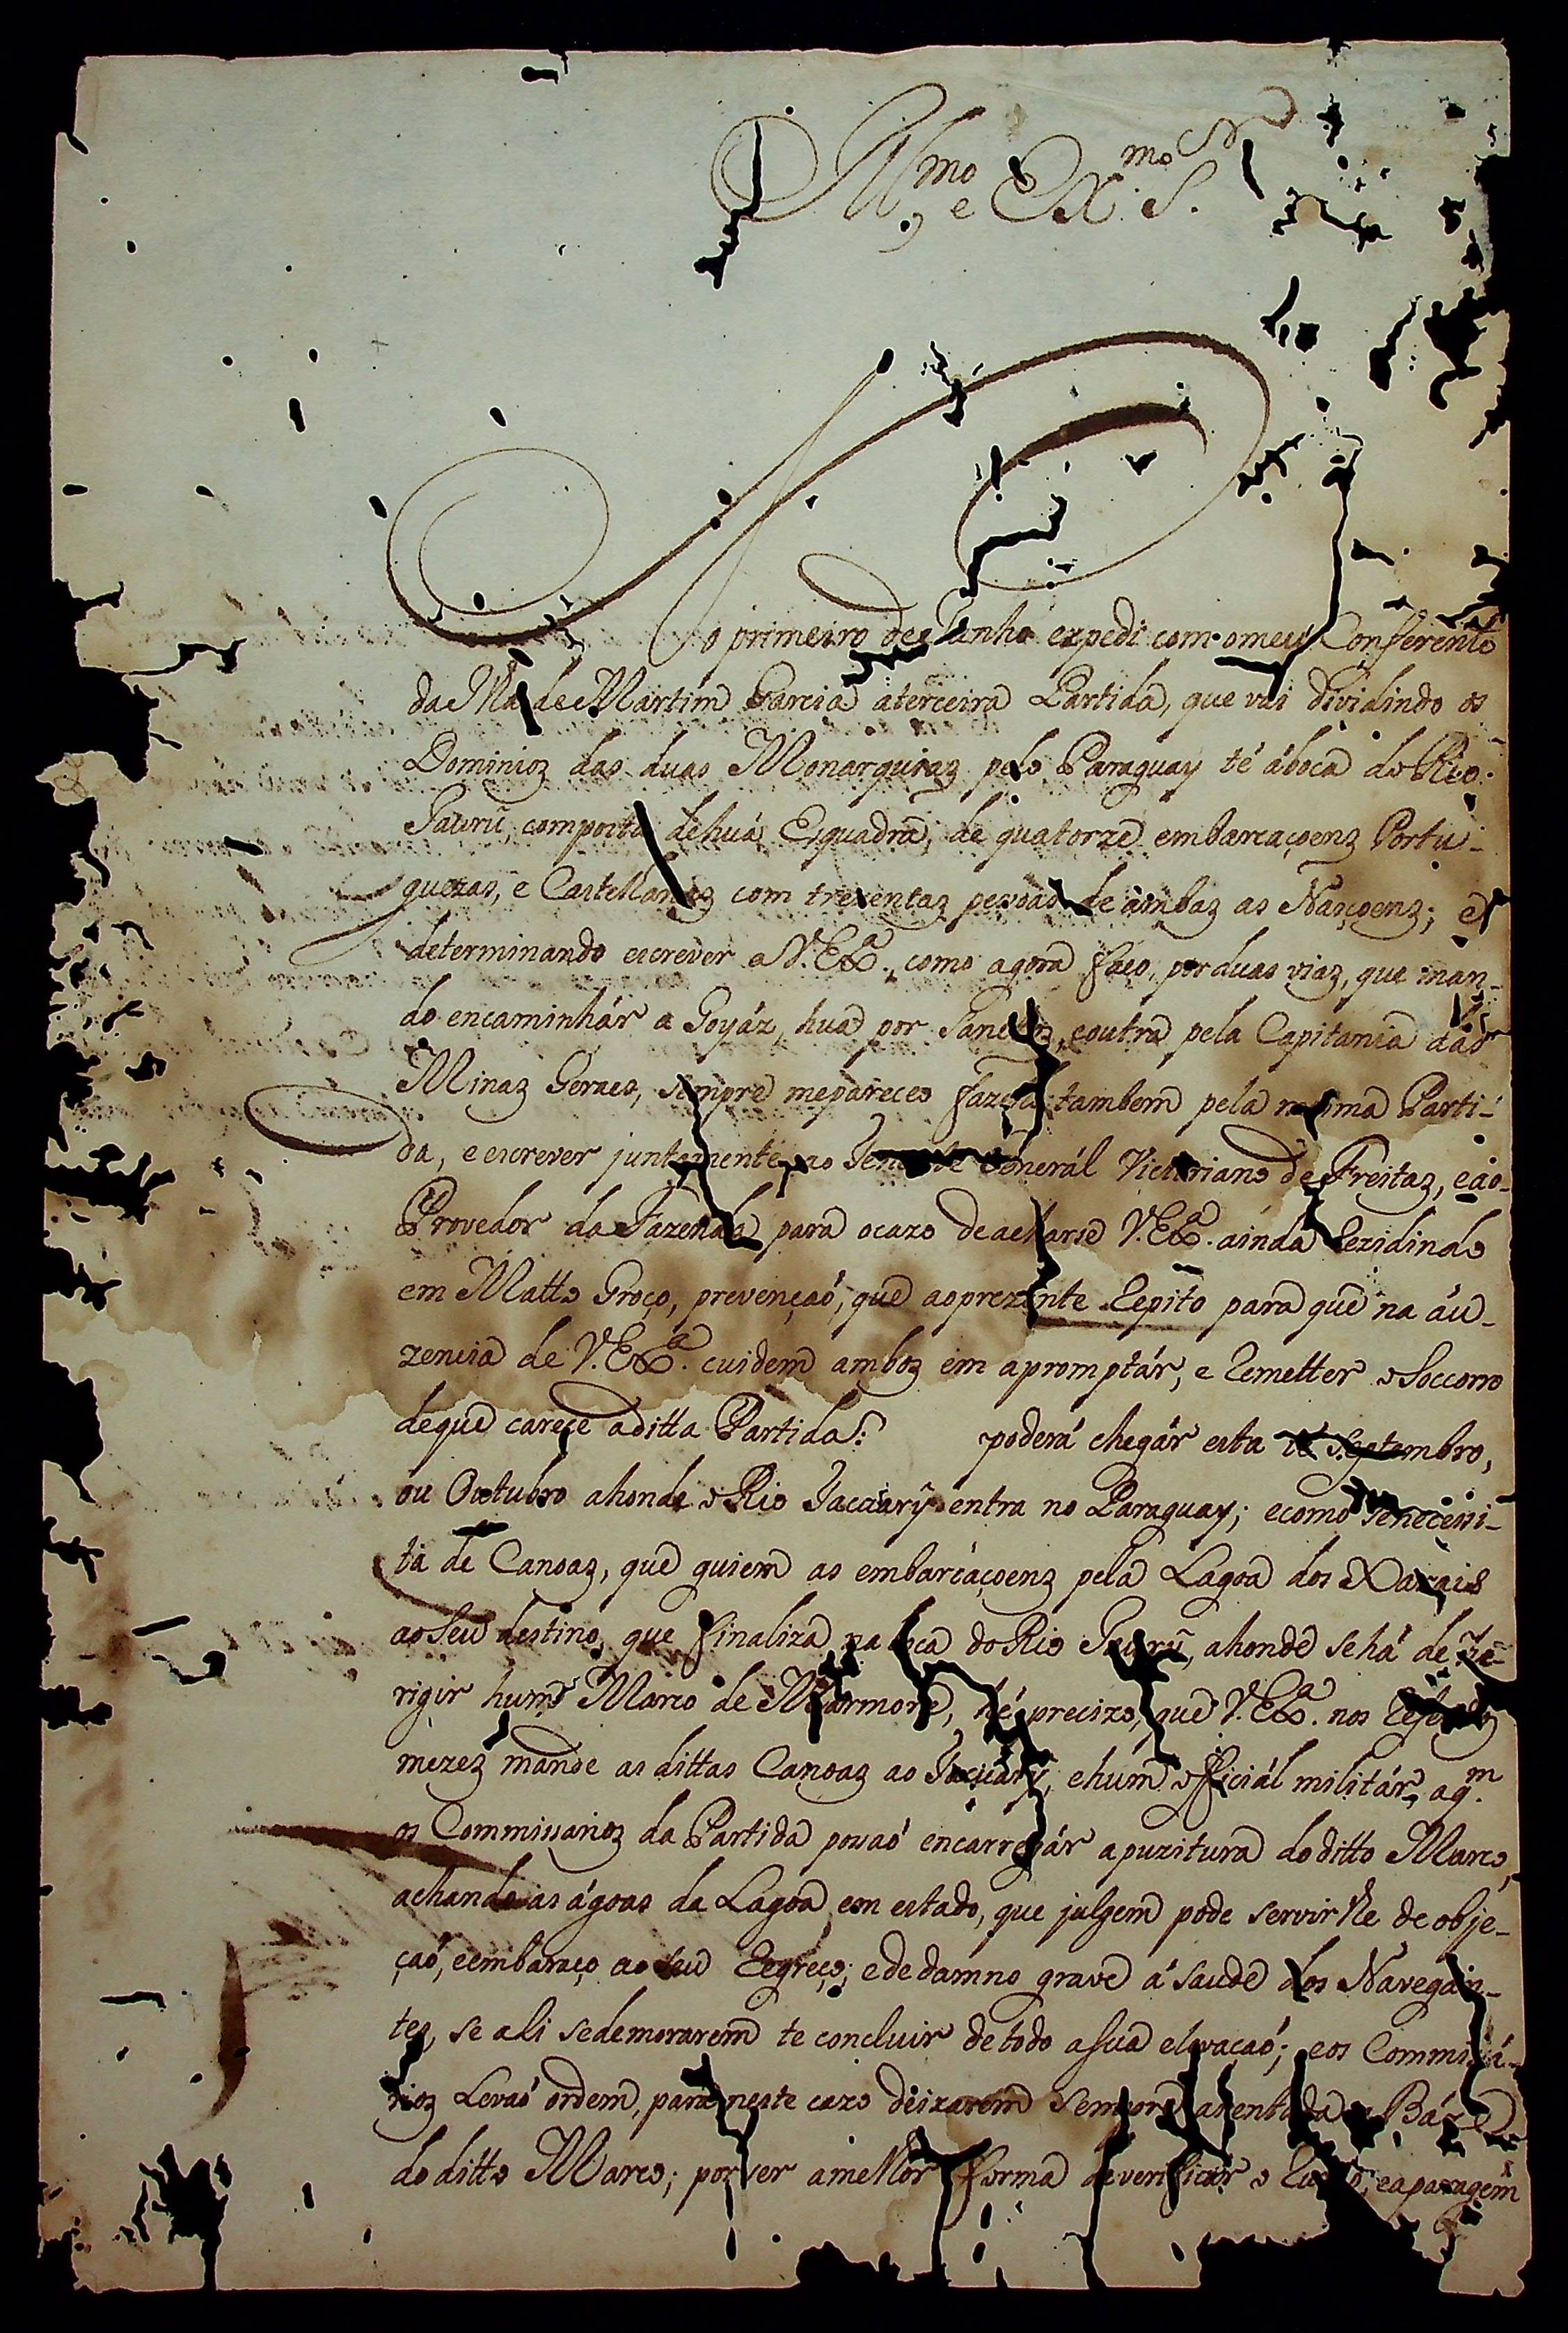 Ill.mo e Ex.mo S.r
No primeiro de Junho expedi com o meu Conferente
da Ilha de Martim Garcia aterceira Partida, que vai dividindo os
Dominioz das duas Monarquiaz pelo Paraguay té á boca do Rio
Jaurú, composta de huá Esquadra, de quatorze embarcaçoenz Portu-
guezas, e Castellanaz com trezentaz pessoas de ambaz as Naçoenz; e
determinando escrever a V. Ex.a, como agora faço, por duas viaz, que man-
do encaminhár a Goyáz, hua por Sanctoz, eoutra pela Capitania das
Minaz Geraes, sempre mepareceo fazelo tambem pela mesma Parti-
da, e escrever juntamente ao Tenente Generál Victoriano de Freitaz, eao
Provedor da Fazenda para ocazo de acharse V. Ex.a ainda Rezidindo
em Matto Groço, prevençaó, que aoprezente Repito para que na áu-
zencia de V. Ex.a cuidem amboz em apromptár, e Remetter o Soccorro
deque carece aditta Partida: poderá chegár esta té Septembro,
ou Octubro ahonde o Rio Taccuarÿ entra no Paraguay; ecomo Senecessi-
ta de Canoaz, que guiem as embarcaçoenz pela Lagoa dos Xarais
ao Seu destino, que finaliza na boca do Rio Jaurú, ahonde se há de
rigir hum Marco de Marmore, hé precizo, que V. Ex.a nos Referidoz
mezez mande as dittas Canoaz ao Tacuarÿ, ehum officiál militár, aq.m
os Commissarioz da Partida possaó encarregár apuzitura do ditto Marco,
achando as ágoas da Lagoa em estado, que julgem pode servirlhe de obje-
çaó, eembaraço ao seu Regreço; ede damno grave á saude dos Navegan-
tes, se ali sedemorarem te concluir de todo asua elevacaó; eos Commissá-
rioz Levaó ordem, para neste cazo deixarem sempre asentada a Báze
do ditto Marco; por ser amelhór forma de verificár o eaparagem